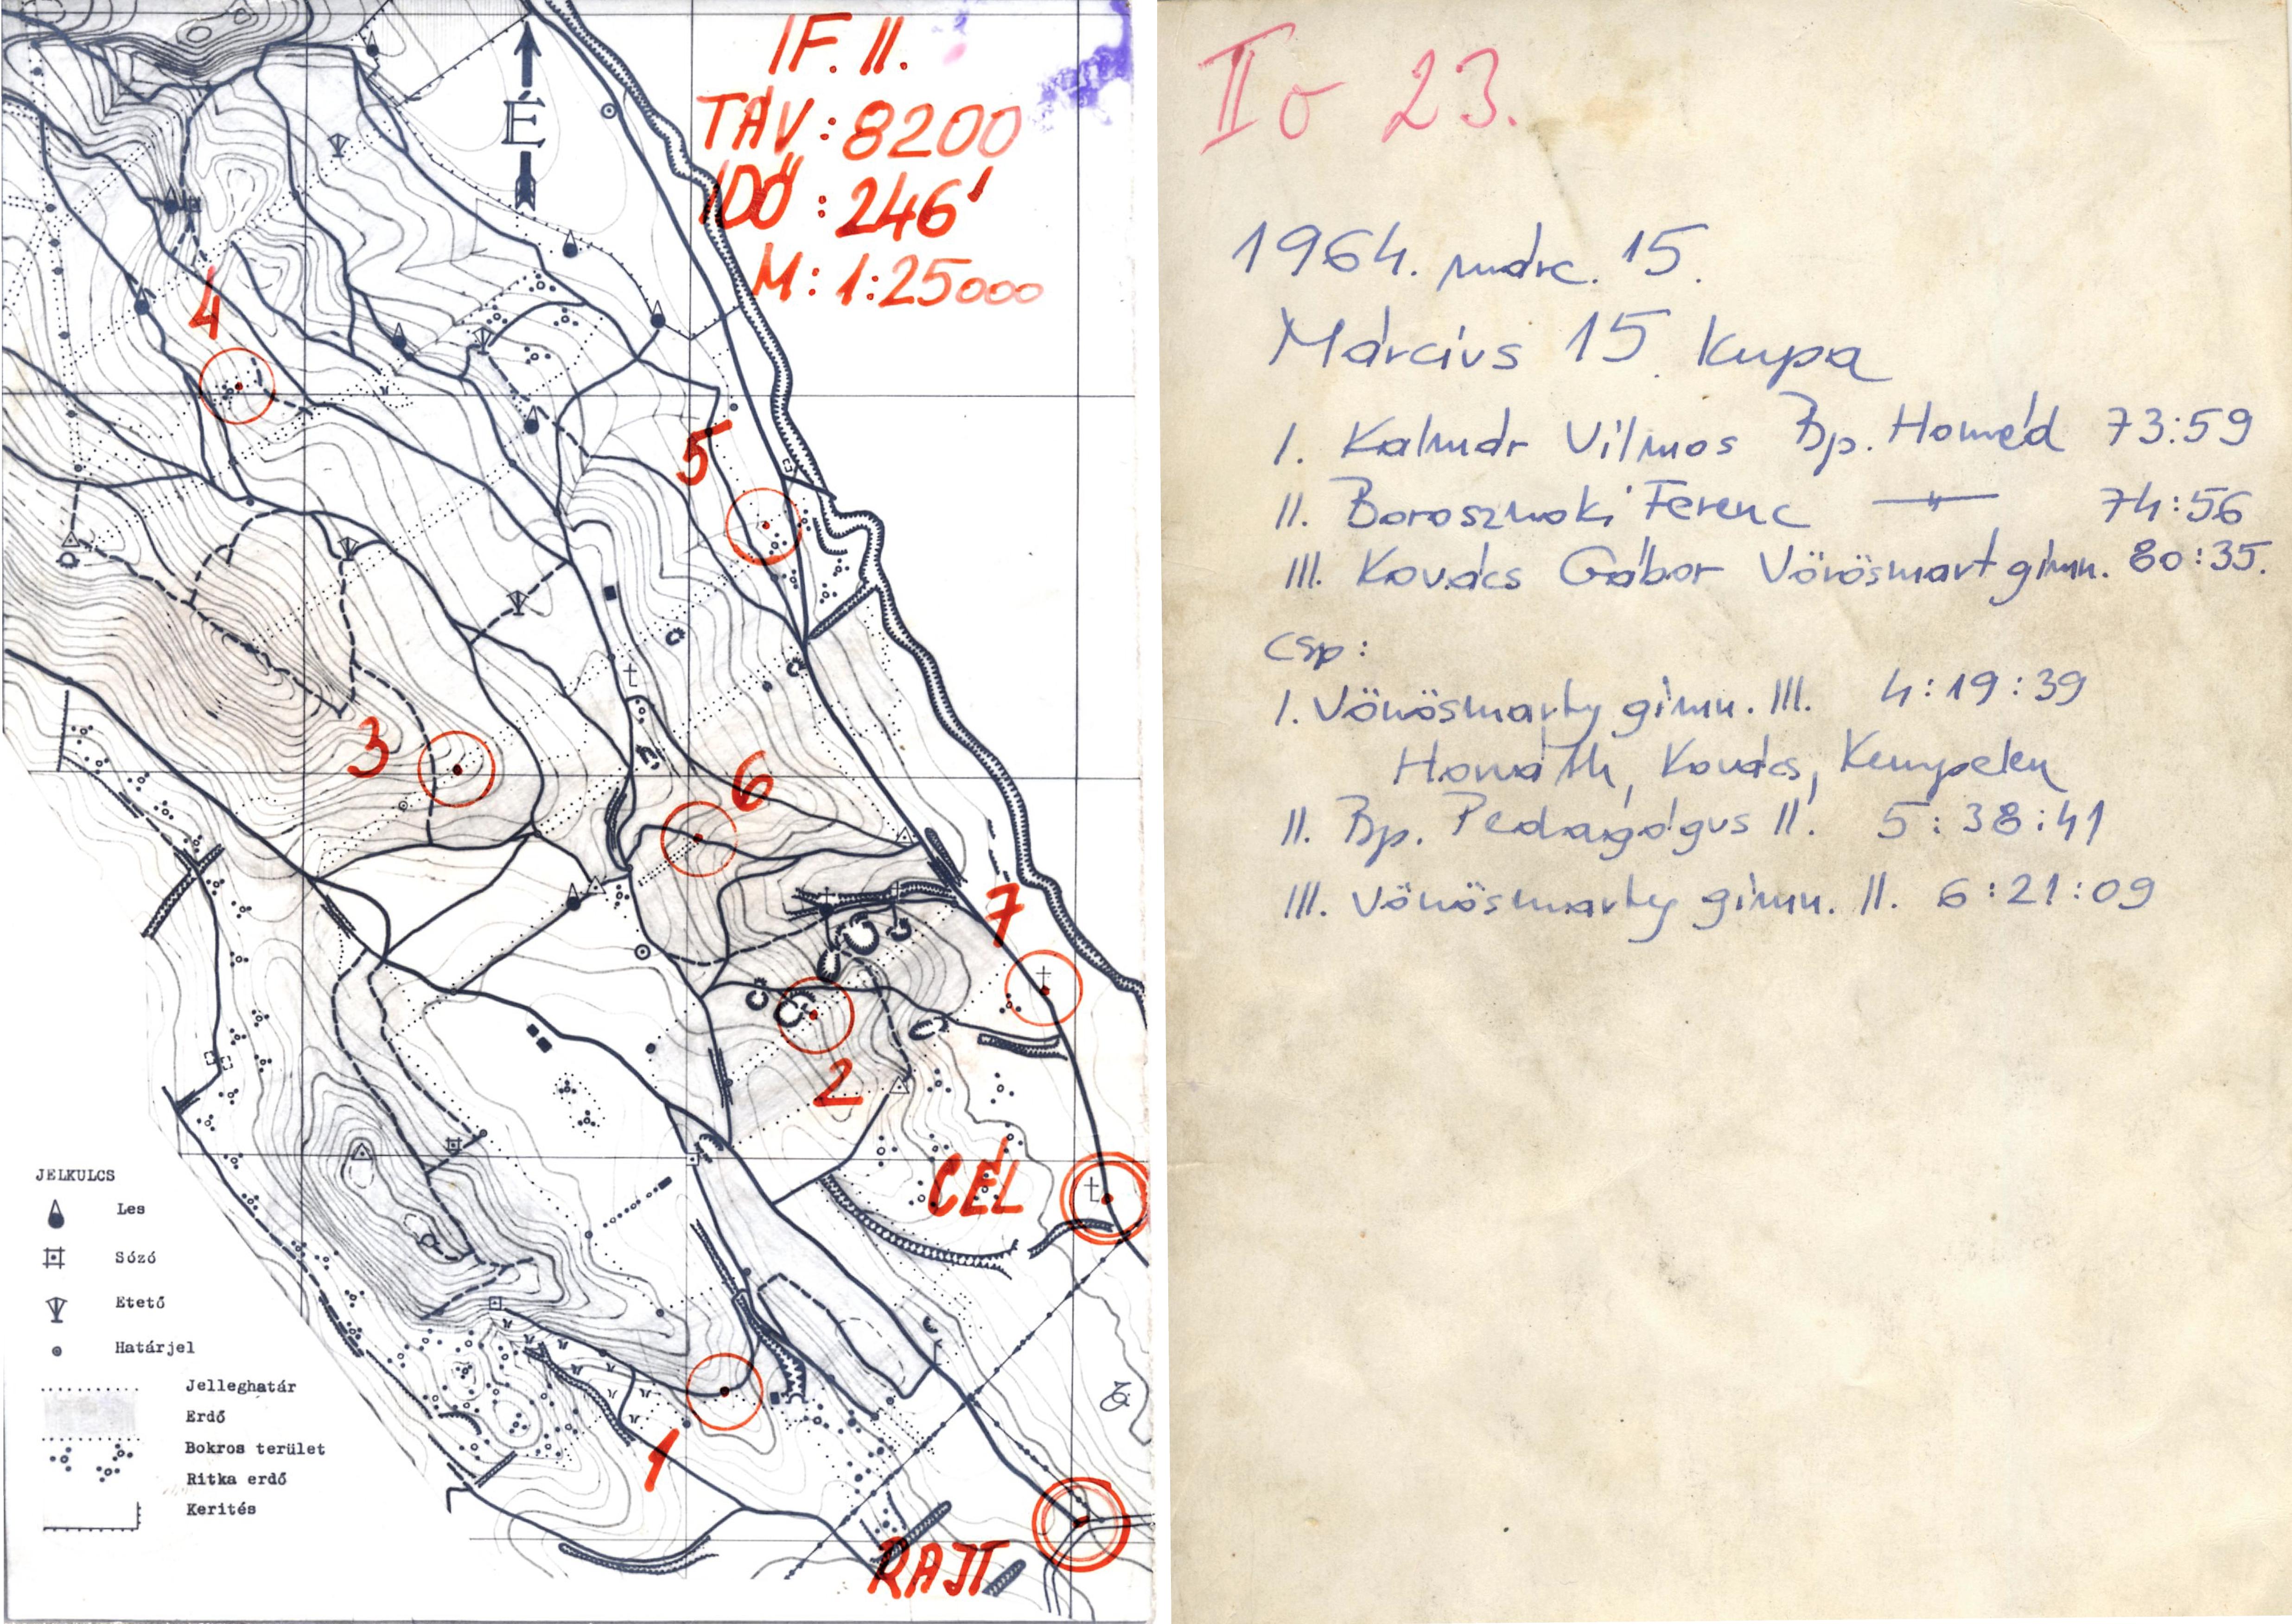 IF. II.
TÁV: 8200
IDŐ: 246'
M: 1:25000
É
4
5
3
6
7
2
CÉL
1
RAJT
JELKULCS
Les
Sózó
Etető
Határjel
Jelleghatár
Erdő
Bokros terület
Ritka erdő
Kerités
II o 23.
1964. márc. 15.
Március 15. Kupa
I. Kalmár Vilmos Bp. Honvéd 73:59
II. Borosznoki Ferenc —"— 74:56
III. Kovács Gábor Vörösmart gimn. 80:35.
Csp:
I. Vörösmarty gimn. III. 4:19:39
Horváth, Kovács, Kempelen
II. Bp. Pedagógus II. 5:38:41
III. Vörösmarty gimn. II. 6:21:09